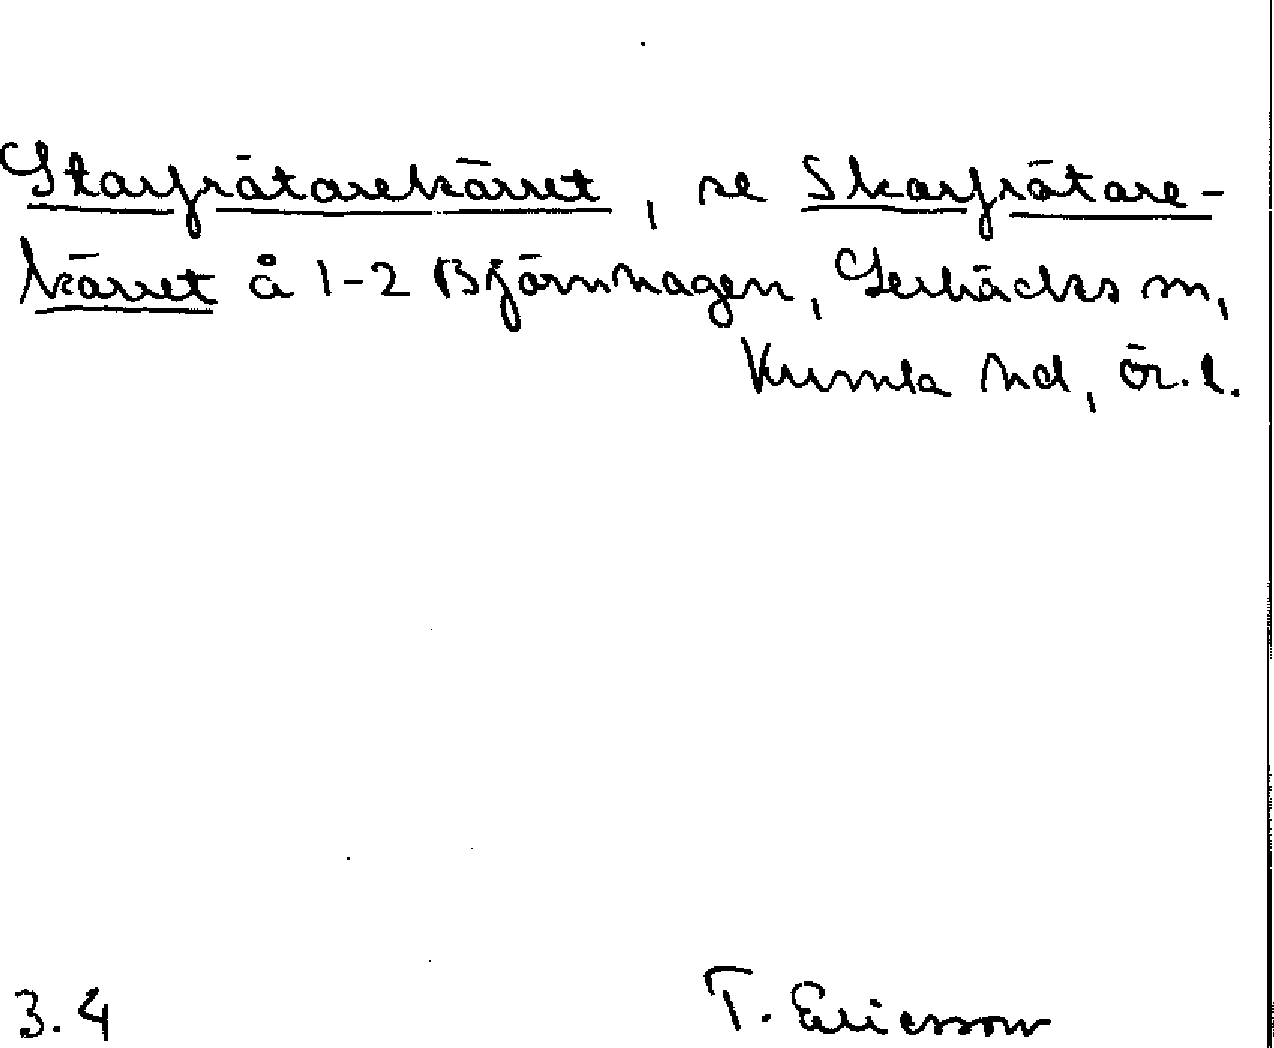 Starfrätarekärret, se Skarfrätare-
kärret å 1-2 Björnhagen, Lerbäcks sn,
Kumla hd, ör. l.
3.4 T. Ericsson